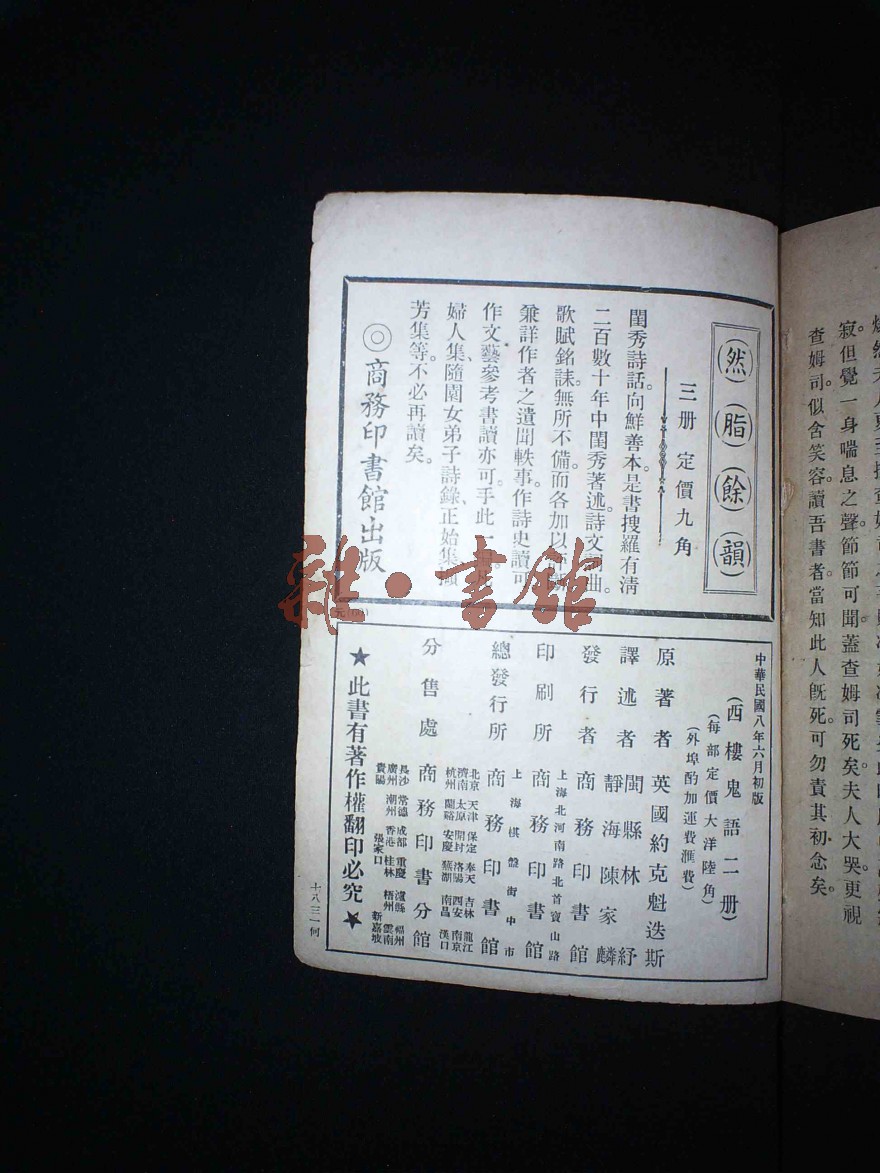 然脂餘韻
三册 定價九角
閨秀詩話。向鮮善本。是書搜羅有淸
二百數十年中閨秀著述。詩文詞曲。
歌賦銘誄。無所不備。而各加以評
兼詳作者之遺聞軼事。作詩史讀可。
作文藝參考書讀亦可。手此一
婦人集、隨園女弟子詩錄、正始集、
芳集等。不必再讀矣。
◎商務印書館出版
中華民國八年六月初版
(西樓鬼語二册)
(每部定價大洋陸角)
(外埠酌加運費滙費)
原著者 英國約克魁迭斯
譯述者 閩縣林紓
靜海陳家麟
發行者 商務印書館
上海北河南路北首寶山路
印刷所 商務印書館
上海棋盤街中市
總發行所 商務印書館
北京 天津 保定 奉天 吉林 龍江
濟南 太原 開封 洛陽 西安 南京
杭州 蘭谿 安慶 蕪湖 南昌 漢口
分售處 商務印書分館
長沙 常德 成都 重慶 瀘縣 福州
廣州 潮州 香港 桂林 梧州 雲南
貴陽 張家口 新嘉坡
★此書有著作權翻印必究★
十八三一何
寂。但覺一身喘息之聲。節節可聞。蓋查姆司死矣。夫人大哭。更視
查姆司。似含笑容。讀吾書者。當知此人旣死。可勿責其初念矣。
雜·書館